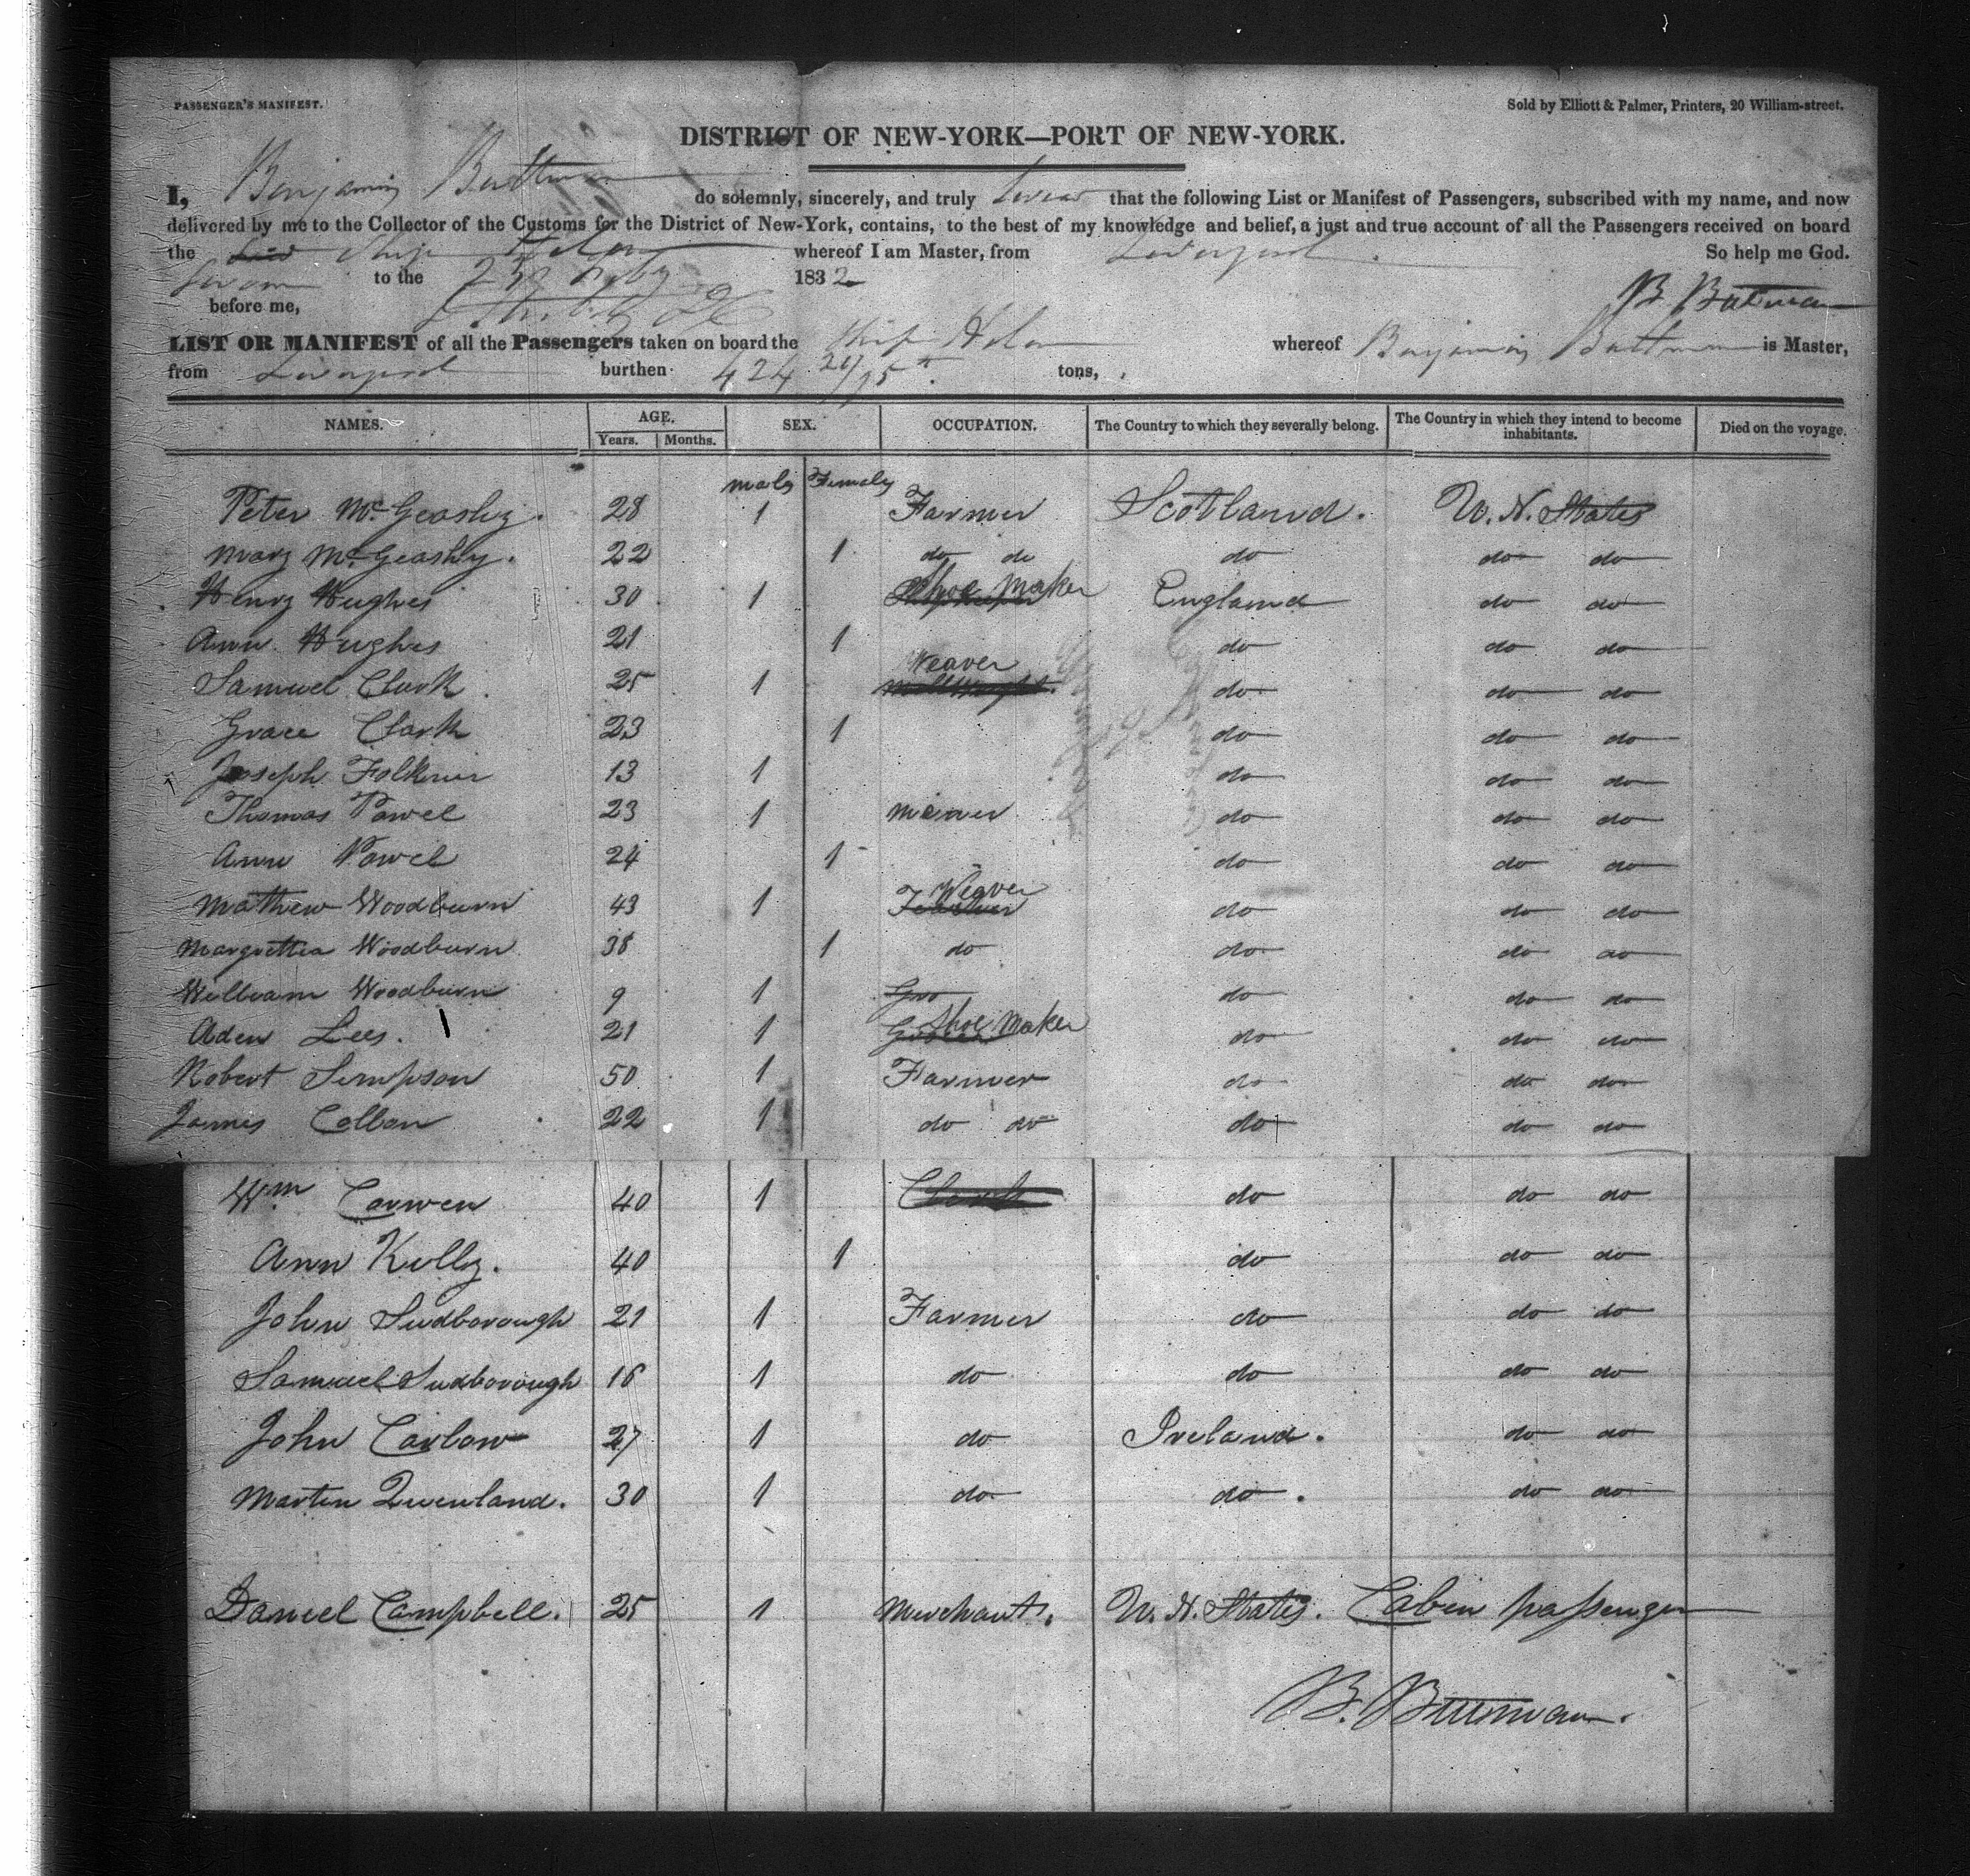 PASSENGER'S MANIFEST.
Sold by Elliott & Palmer, Printers, 20 William-street.
DISTRICT OF NEW-YORK—PORT OF NEW-YORK.
I, Benjamin do solemnly, sincerely, and truly swear that the following List or Manifest of Passengers, subscribed with my name, and now
delivered by me to the Collector of the Customs for the District of New-York, contains, to the best of my knowledge and belief, a just and true account of all the Passengers received on board
the Ship whereof I am Master, from Liverpool So help me God.
Sworn to the 1832
before me,
B.
LIST OR MANIFEST of all the Passengers taken on board the Ship whereof Benjamin is Master,
from Liverpool burthen 424 tons,
NAMES. AGE. SEX. OCCUPATION. The Country to which they severally belong. The Country in which they intend to become inhabitants. Died on the voyage.
Years. Months.
male Female
Peter McGeashy. 28 1 Farmer Scotland. U. N. States
Mary McGeashy. 22 1 do do do do do
Henry Hughes 30 1 Shoe Maker England do do
Ann Hughes 21 1 do do do
Samuel Clark 25 1 Weaver do do do
Grace Clark 23 1 do do do
Joseph 13 1 do do do
Thomas Powel 23 1 do do do
Ann Powel 24 1 do do do
Mathew Woodburn 43 1 Weaver do do do
Woodburn 38 1 do do do do
William Woodburn 9 1 do do do
Aden Lees. 21 1 Shoe Maker do do do
Robert Simpson 50 1 Farmer do do do
James 22 1 do do do do do
Wm 40 1 do do do
Ann Kelly. 40 1 do do do
John Sudborough 21 1 Farmer do do do
Samuel Sudborough 16 1 do do do do
John Carlow 27 1 do Ireland. do do
Martin 30 1 do do. do do
Daniel Campbell. 25 1 Merchant. U. N. States. Cabin passenger
B.